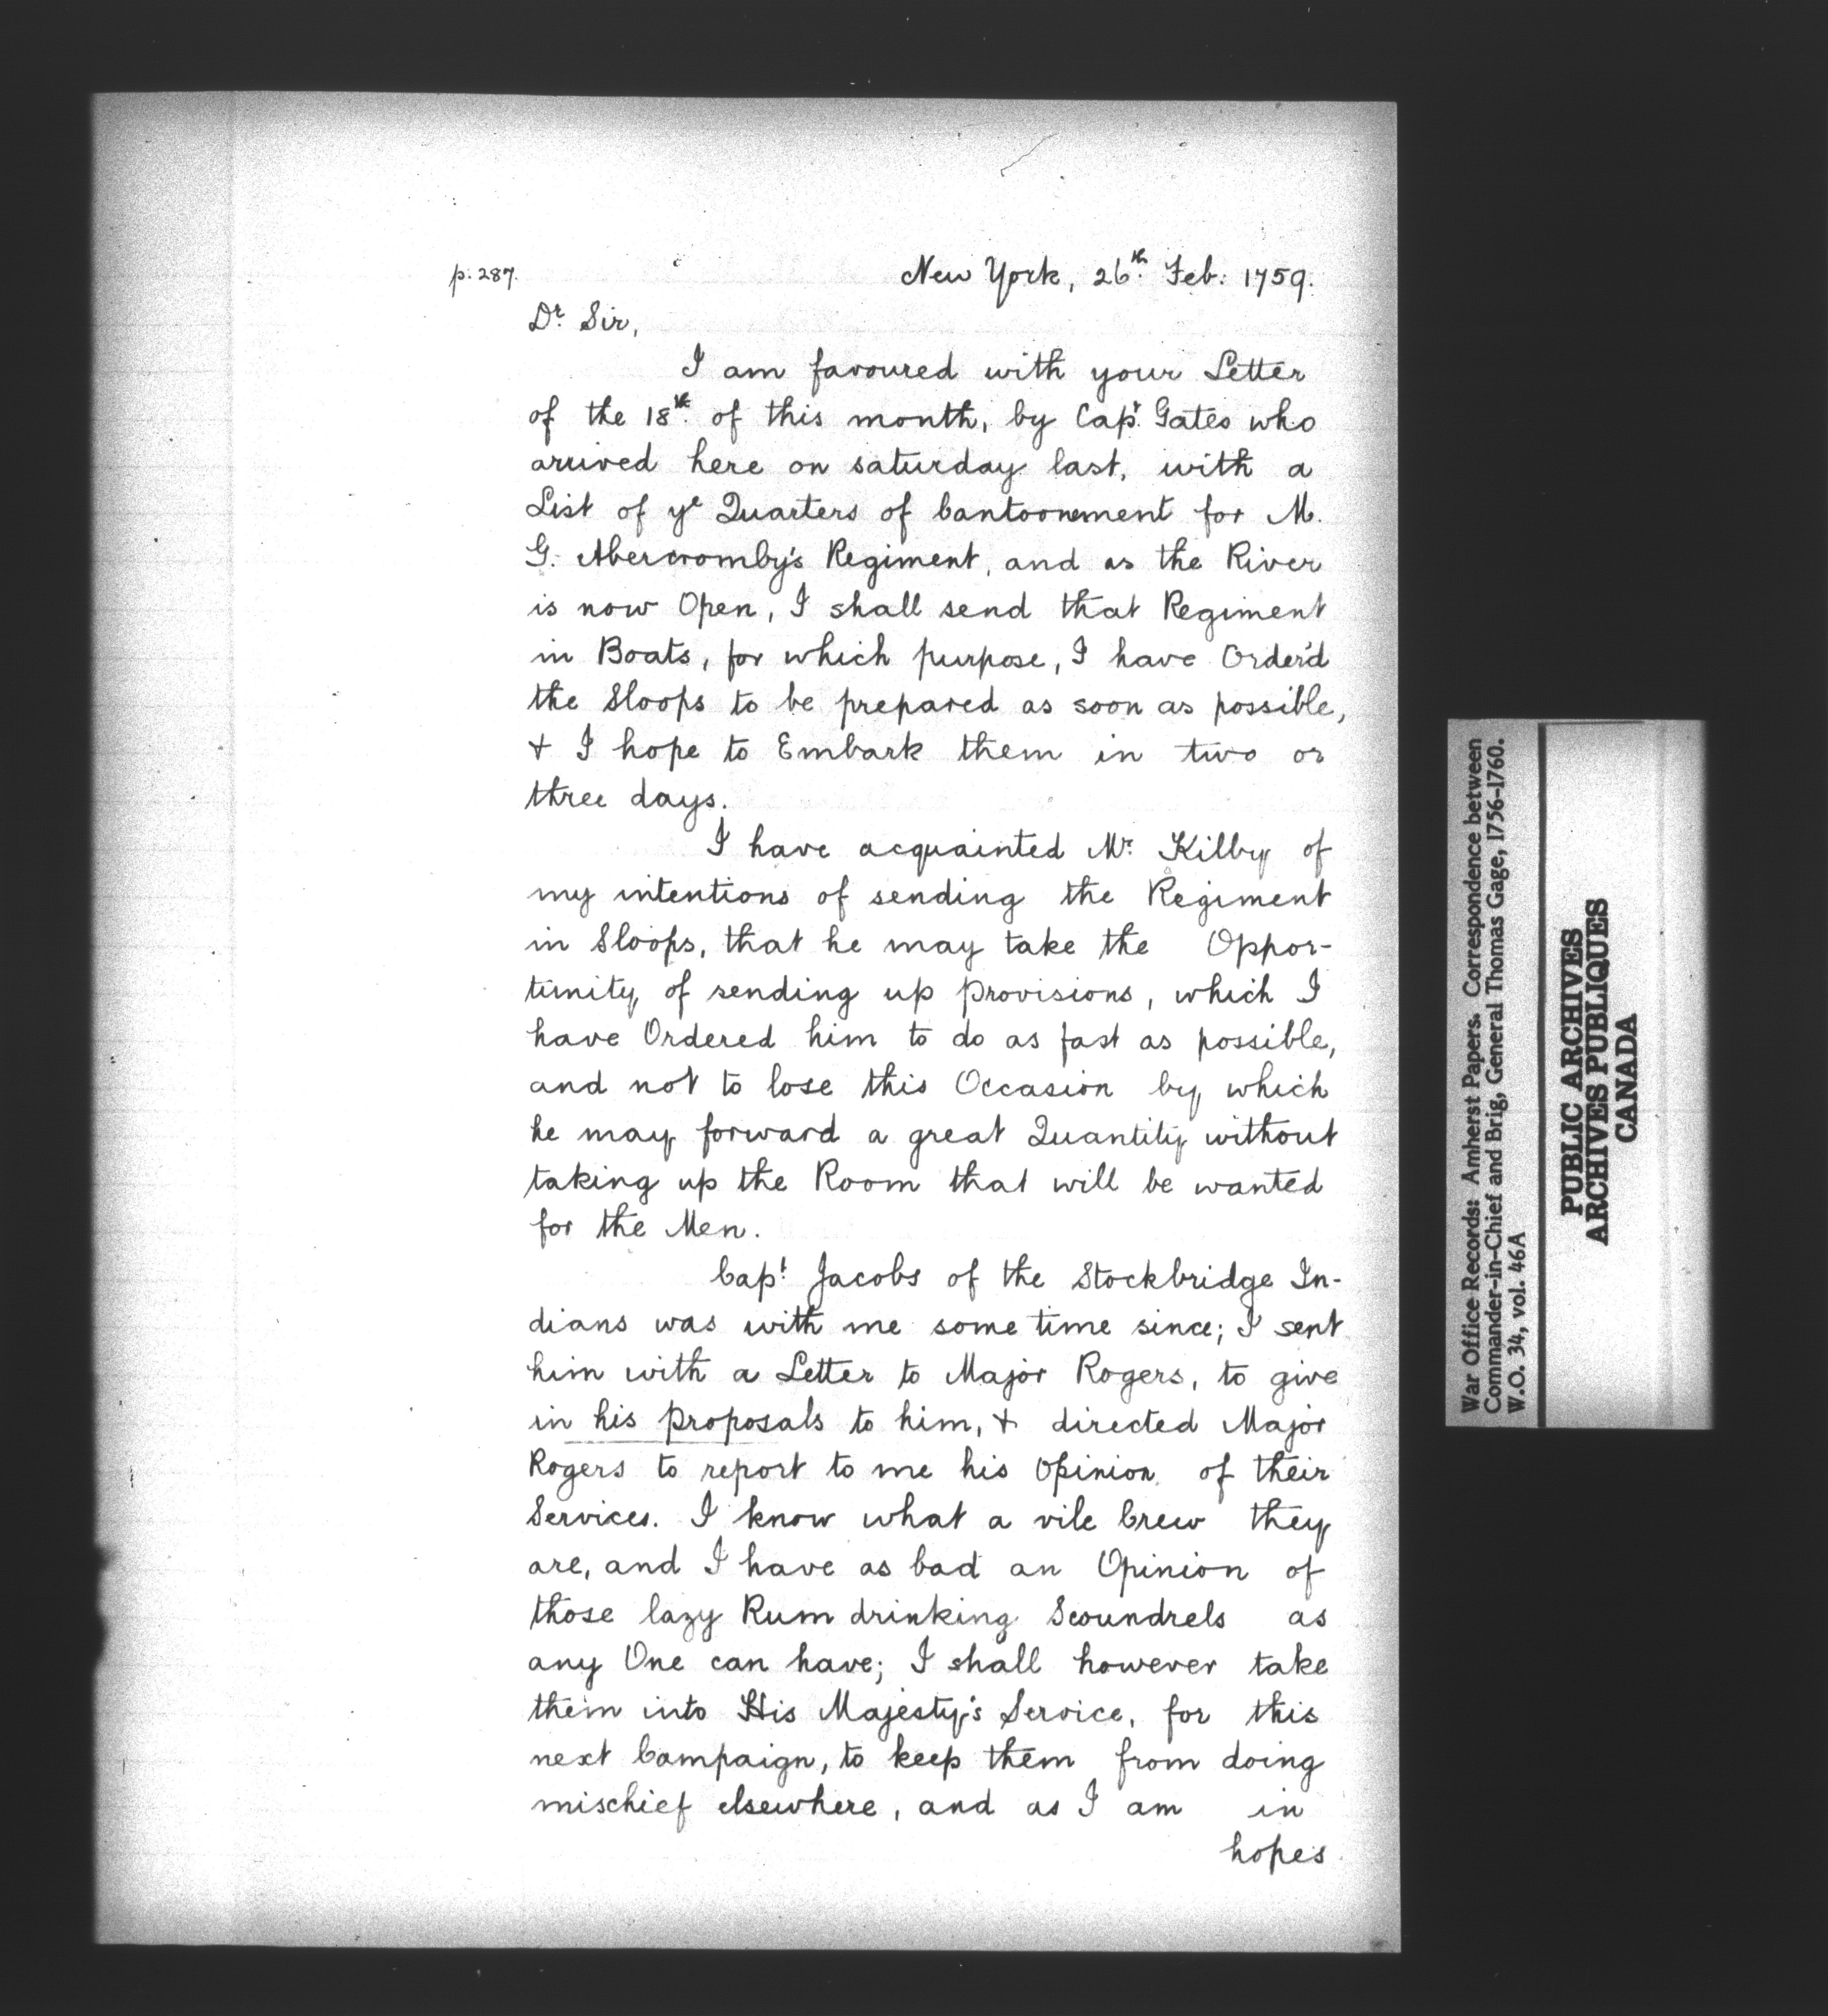 p. 287.
New York, 26th Feb: 1759.
Dr Sir,
I am favoured with your Letter
of the 18th of this month, by Capt. Gates who
arrived here on saturday last, with a
List of ye Quarters of Cantoonement for M.
G. Abercromby's Regiment, and as the River
is now Open, I shall send that Regiment
in Boats, for which purpose, I have Order'd
the Sloops to be prepared as soon as possible,
+ I hope to Embark them in two or
three days.
I have acquainted Mr. Kilby of
my intentions of sending the Regiment
in Sloops, that he may take the Oppor-
tunity of sending up provisions, which I
have Ordered him to do as fast as possible,
and not to lose this Occasion by which
he may forward a great Quantity without
taking up the Room that will be wanted
for the Men.
Capt. Jacobs of the Stockbridge In-
dians was with me some time since; I sent
him with a Letter to Major Rogers, to give
in his proposals to him, + directed Major
Rogers to report to me his Opinion of their
Services. I know what a vile Crew they
are, and I have as bad an Opinion of
those lazy Rum drinking Scoundrels as
any One can have; I shall however take
them into His Majesty's Service, for this
next Campaign, to keep them from doing
mischief elsewhere, and as I am in
hopes
War Office Records: Amherst Papers. Correspondence between
Commander-in-Chief and Brig, General Thomas Gage, 1756-1760.
W.O. 34, vol. 46A
PUBLIC ARCHIVES
ARCHIVES PUBLIQUES
CANADA